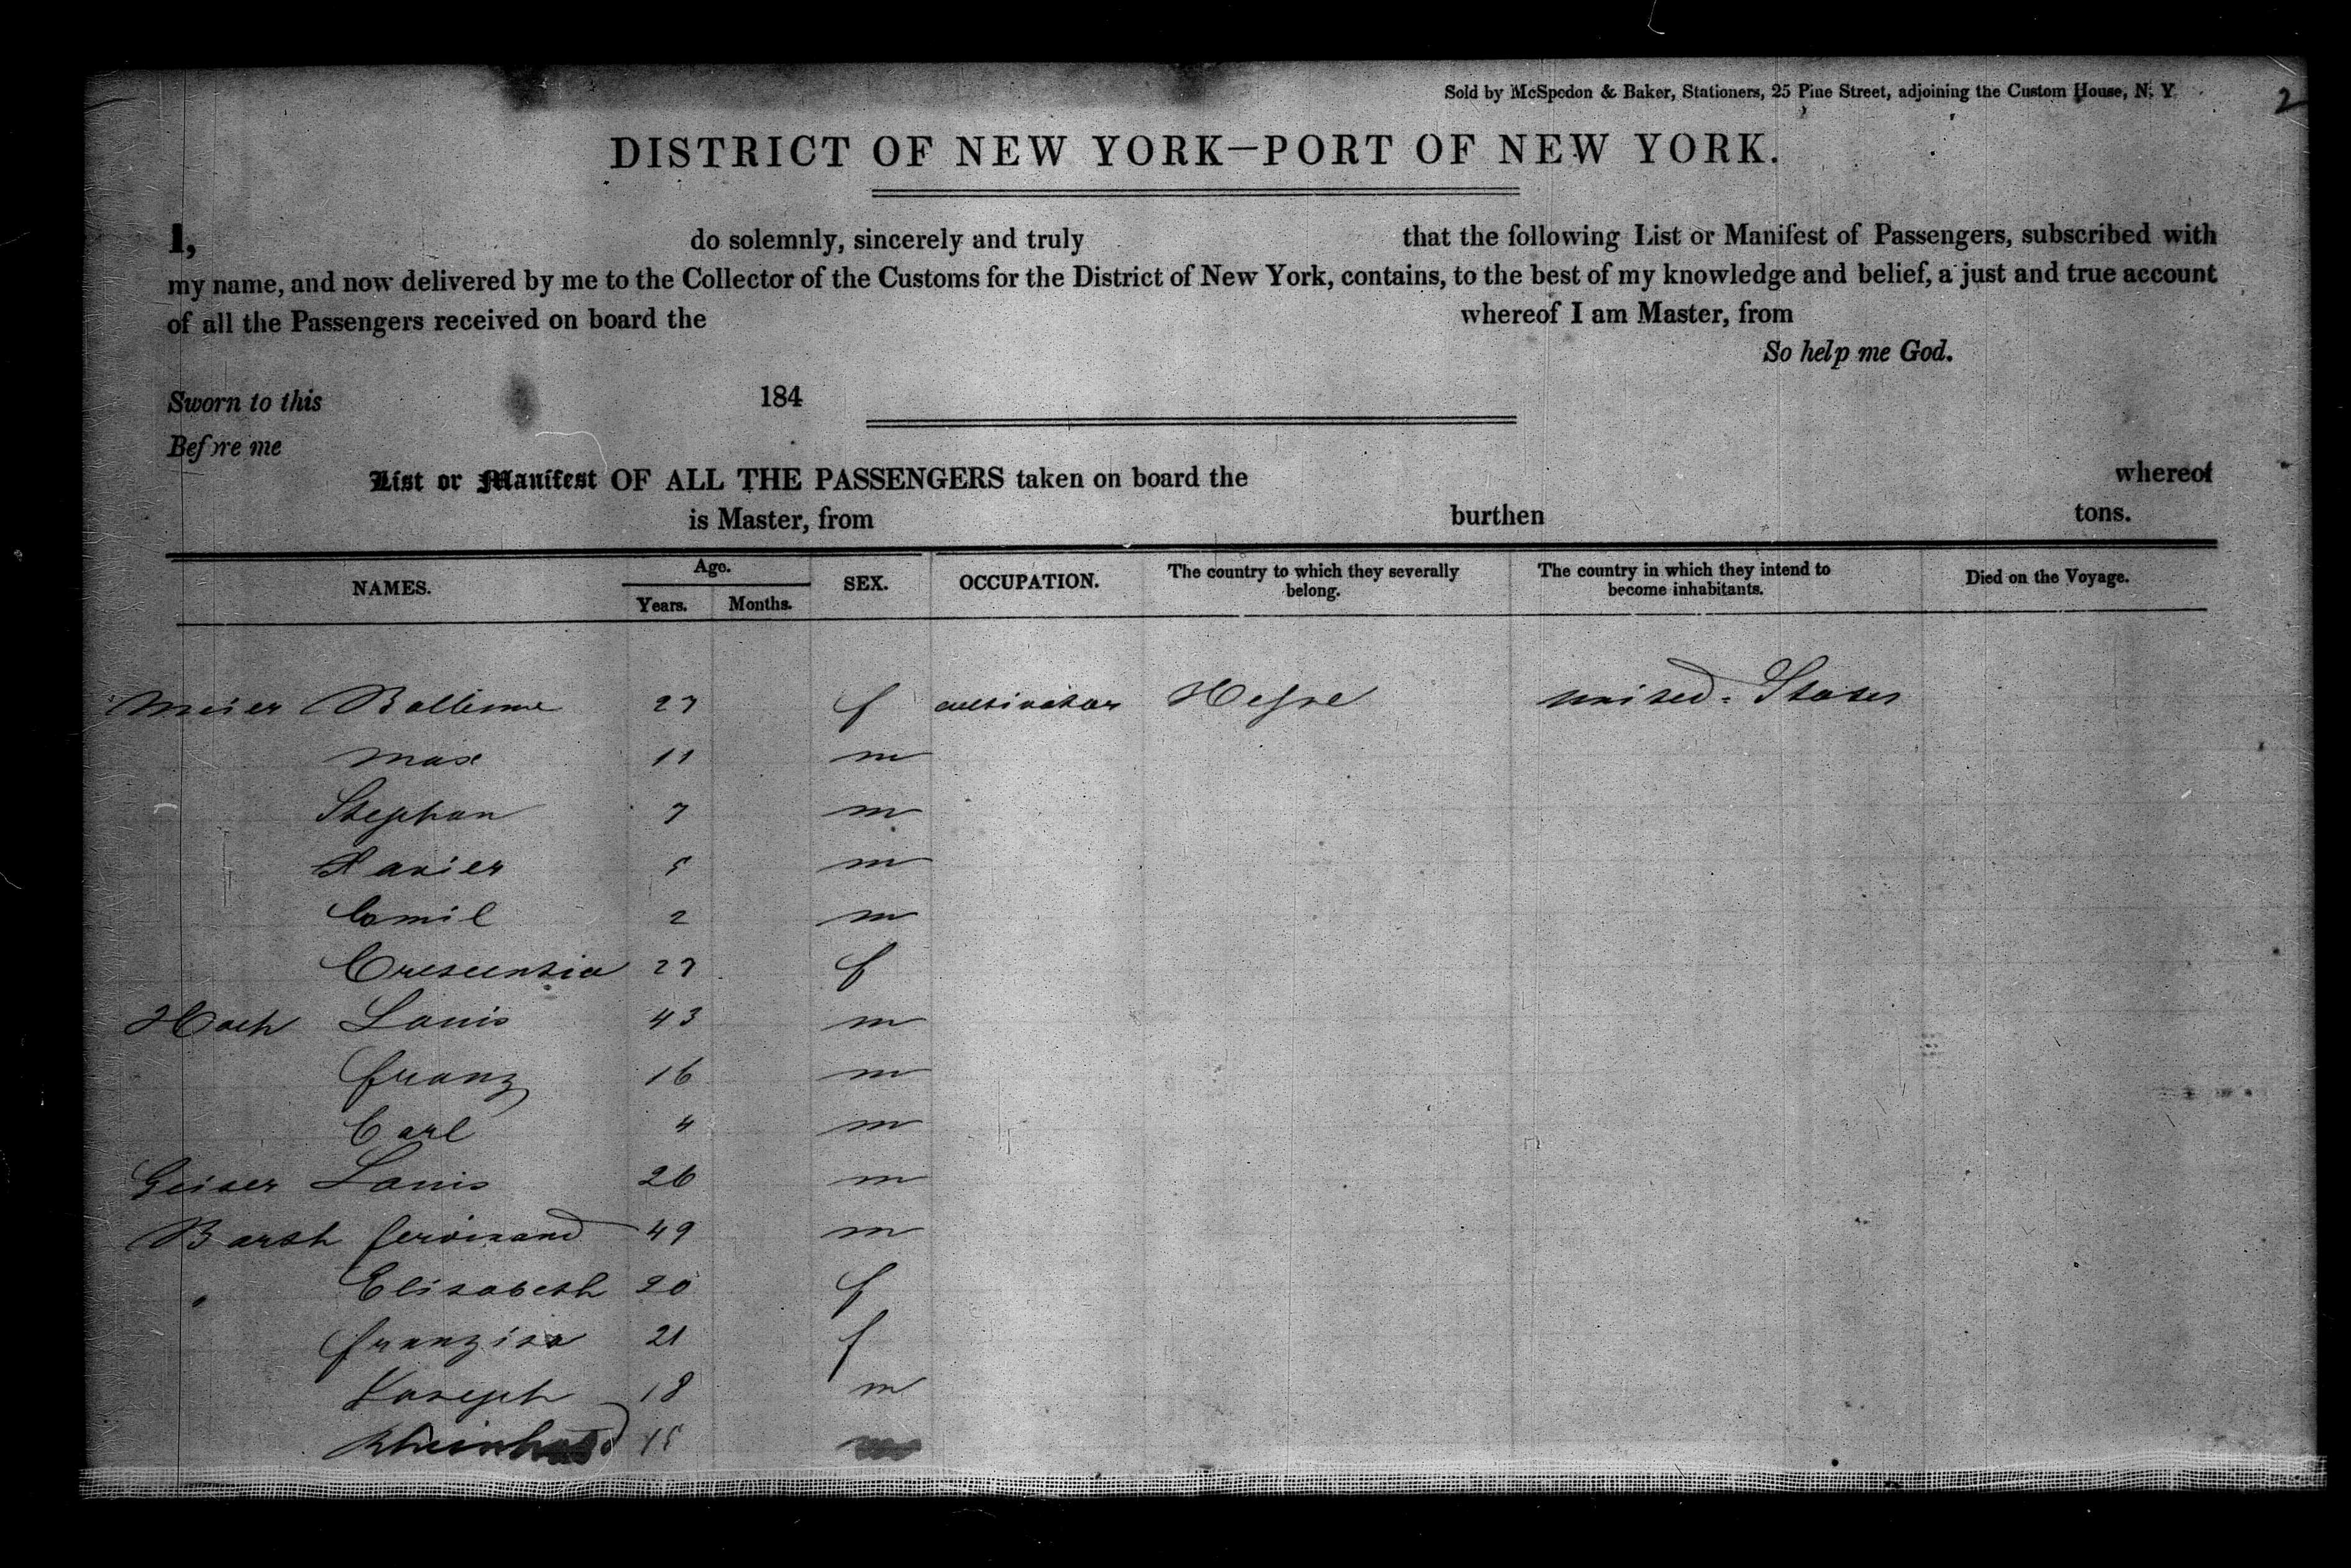 Sold by McSpedon & Baker, Stationers, 25 Pine Street, adjoining the Custom House, N. Y.
2
DISTRICT OF NEW YORK—PORT OF NEW YORK.
I, do solemnly, sincerely and truly that the following List or Manifest of Passengers, subscribed with
my name, and now delivered by me to the Collector of the Customs for the District of New York, contains, to the best of my knowledge and belief, a just and true account
of all the Passengers received on board the whereof I am Master, from
So help me God.
Sworn to this 184
Before me
List or Manifest OF ALL THE PASSENGERS taken on board the whereof
is Master, from burthen tons.
NAMES. Age. Years. Months. SEX. OCCUPATION. The country to which they severally belong. The country in which they intend to become inhabitants. Died on the Voyage.
Meier 27 f cultivator Hesse united States
Max 11 m
Stephan 7 m
Xavier 5 m
Camil 2 m
Crescentia 27 f
Hoch Louis 43 m
franz 16 m
Carl 4 m
Geiser Louis 26 m
Barth ferdinand 49 m
" Elisabeth 20 f
21 f
Joseph 18 m
15 m